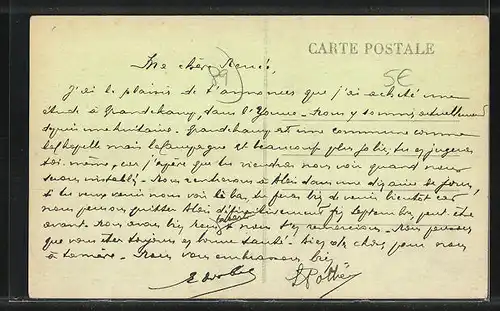 CARTE POSTALE
(89)
5€
Ma chère Renée,
J'ai le plaisir de t'annoncer que j'ai acheté une
étude à Grandchamp, dans l'Yonne - Nous y sommes actuellement
depuis une huitaine. Grandchamp est une commune comme
la Chapelle mais la campagne est beaucoup plus jolie, tu en jugeras
toi-même, car j'espère que tu viendras nous voir quand nous
serons installés - Nous rentrerons à dans une dizaine de jours,
si tu veux venir nous voir là bas, tu feras bien de venir bientôt car
nous pensons quitter définitivement fin septembre, peut être
avant. Nous avons bien reçu et nous t'en remercions - Nous pensons
que vous êtes toujours en bonne santé. de choses pour nous
à ta mère - Nous vous embrassons bien